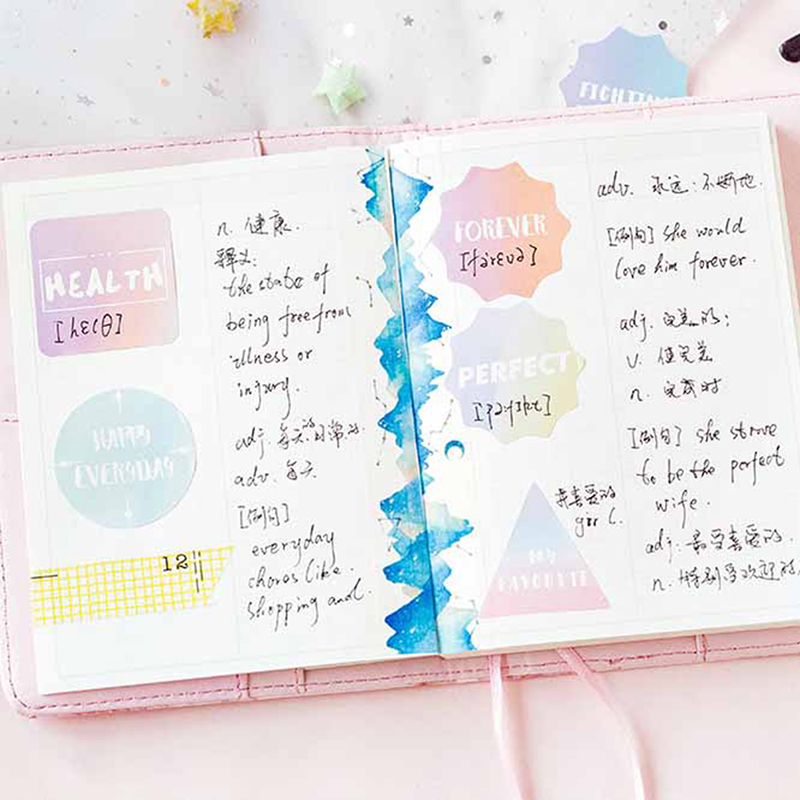 HEALTH
[hεlθ]
n. 健康.
释义:
the state of
being free from
illness or
injury.
HAPPY
EVERYDAY
adj. 每天的日常的.
adv. 每天
[例句]
everyday
chores like.
shopping and.
12
FIGHTING
FOREVER
adv. 永远;不断地.
[例句] she would
love him forever.
PERFECT
adj. 完美的;
v. 使完美
n. 完成时
[例句] she strove
to be the perfect
wife.
我喜爱的
girl.
MY
FAVOURITE
adj. 最受喜爱的.
n. 特别受欢迎的